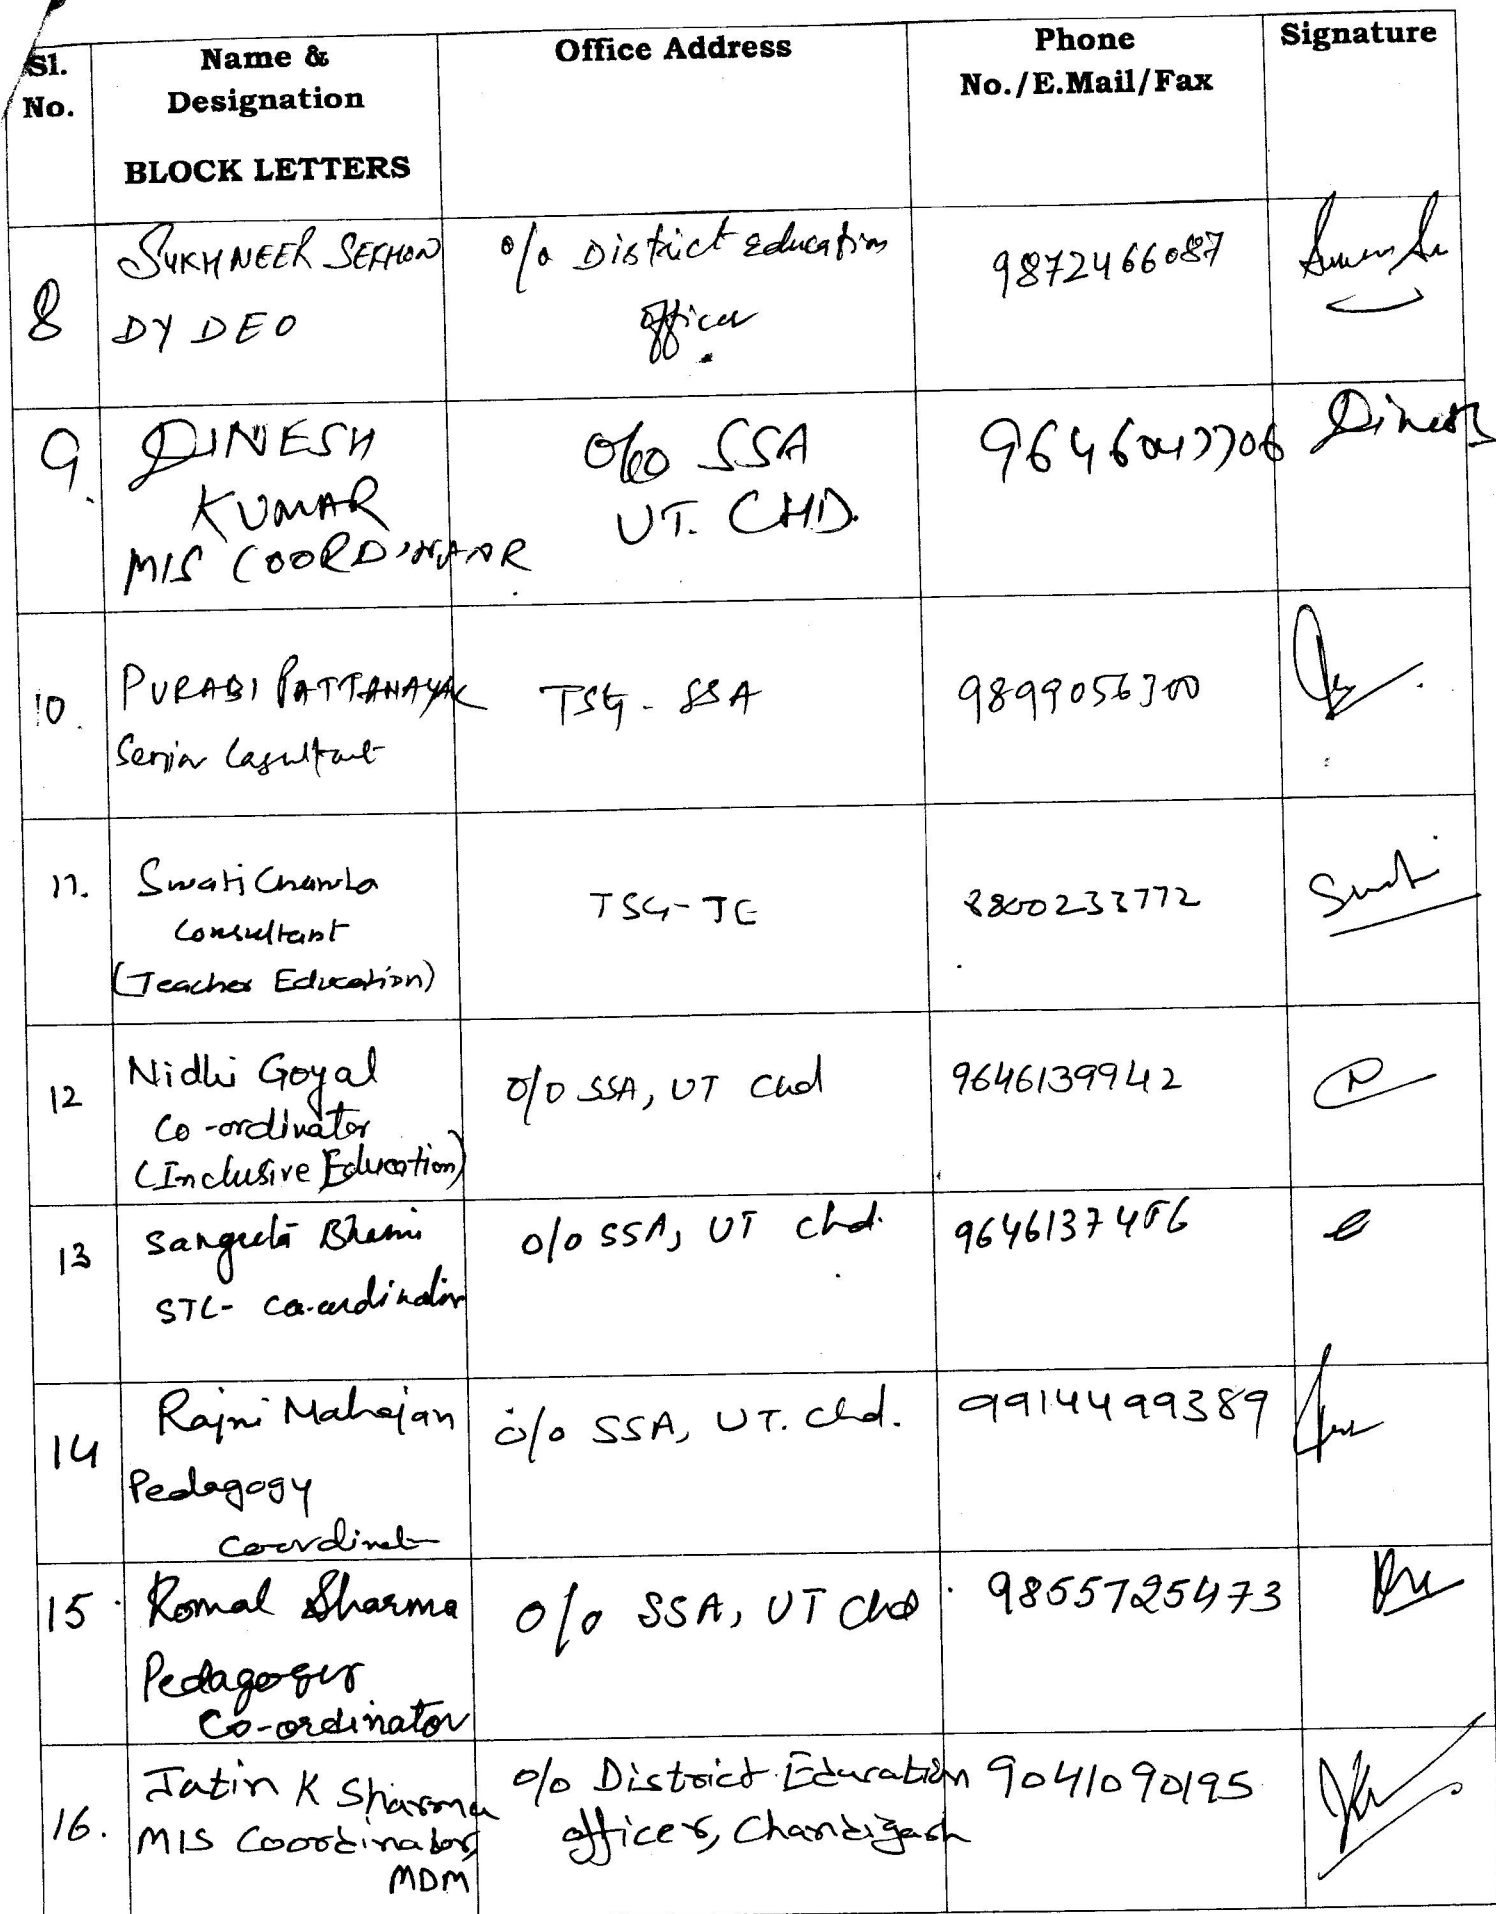 Sl. No.
Name & Designation
BLOCK LETTERS
Office Address
Phone No./E.Mail/Fax
Signature
8
SUKHNEER SEKHON
DY DEO
o/o District education
officer
9872466087
9.
DINESH
KUMAR
MIS COORDINATOR
O/o SSA
UT. CHD.
9646047706
Dinesh
10.
PURABI PATTANAYAK
Senior Consultant
TSG - SSA
9899056300
11.
Swati Chawla
Consultant
(Teacher Education)
TSG-TE
8800233772
Swati
12
Nidhi Goyal
Co-ordinator
(Inclusive Education)
O/O SSA, UT Chd
9646139942
13
Sangeeta
STC- Co-ordinator
O/o SSA, UT Chd.
14
Rajni Mahajan
Pedagogy
Coordinat
o/o SSA, UT. Chd.
9914499389
15
Komal Sharma
Pedagogy
Co-ordinator
O/o SSA, UT Chd
9855725473
16.
Jatin K Sharma
MIS Coordinator,
MDM
o/o District Education
officer, Chandigarh
9041090195